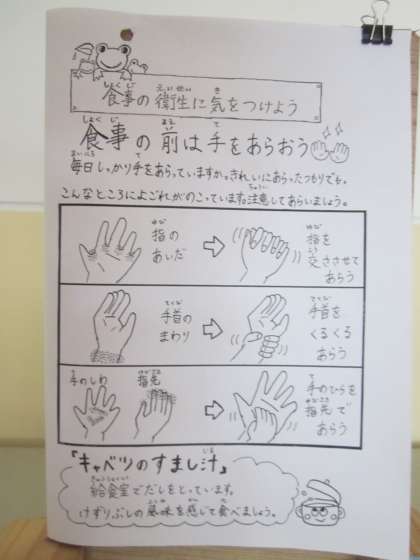 食事の衛生に気をつけよう
食事の前は手をあらおう
毎日しっかり手をあらっていますか。きれいにあらったつもりでも、
こんなところによごれがのこっています。注意してあらいましょう。
指のあいだ
指を交ささせてあらう
手首のまわり
手首をくるくるあらう
手のしわ
指先
手のひらを指先であらう
『キャベツのすまし汁』
給食室でだしをとっています。
けずりぶしの風味を感じて食べましょう。